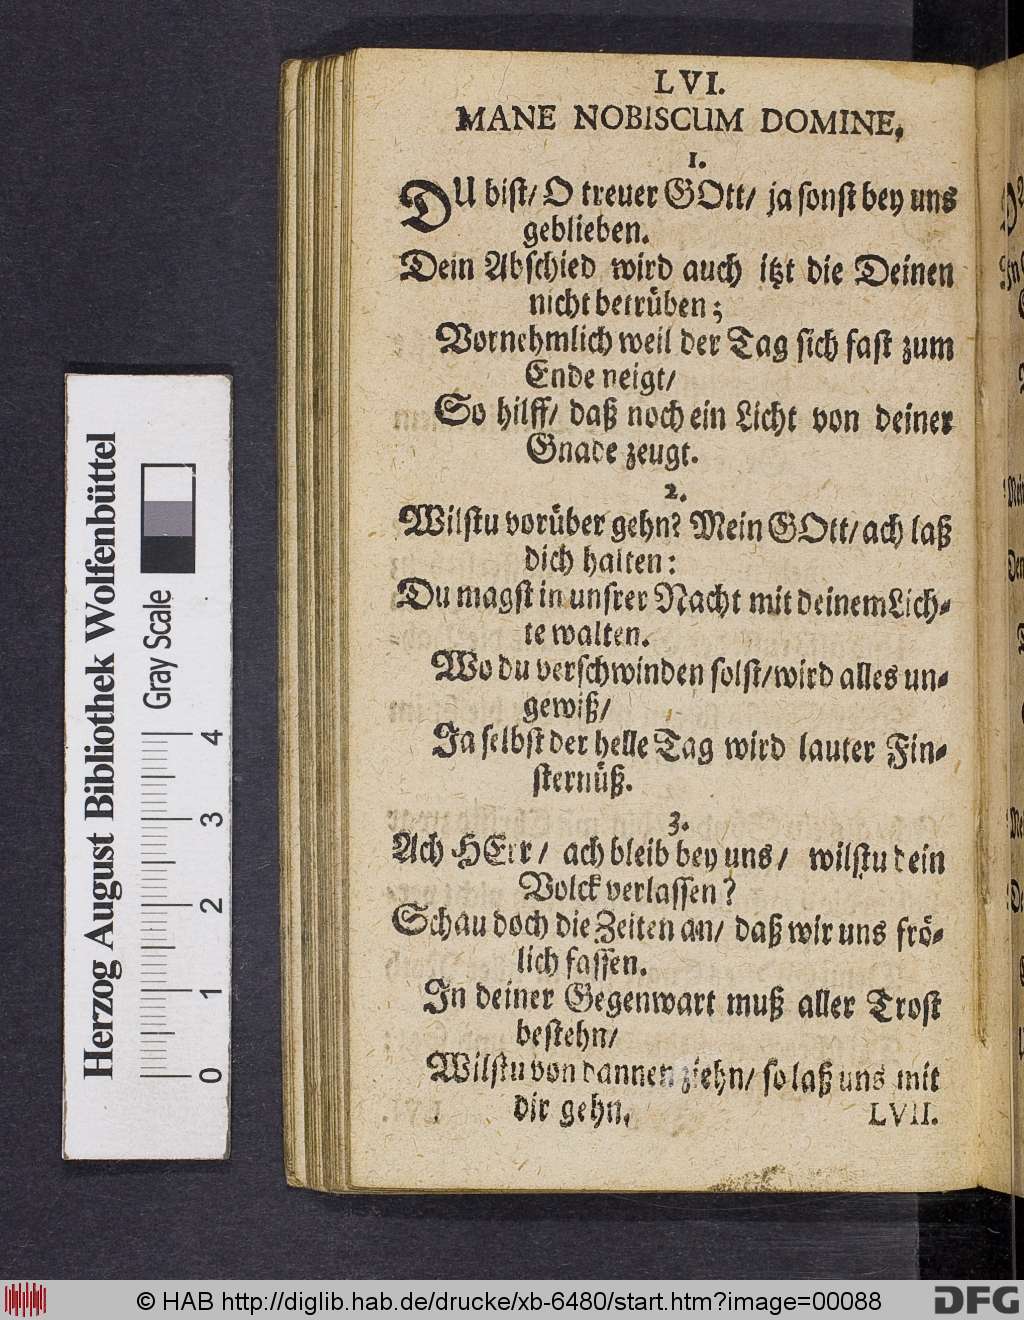 LVI.
MANE NOBISCUM DOMINE.
1.
DU bist/ O treuer GOtt/ ja sonst bey uns
geblieben.
Dein Abschied wird auch itzt die Deinen
nicht betrüben;
Vornehmlich weil der Tag sich fast zum
Ende neigt/
So hilff/ daß noch ein Licht von deiner
Gnade zeugt.
2.
Wilstu vorüber gehn? Mein GOtt/ ach laß
dich halten:
Du magst in unsrer Nacht mit deinem Lich-
te walten.
Wo du verschwinden solst/ wird alles un-
gewiß/
Ja selbst der helle Tag wird lauter Fin-
sternüß.
3.
Ach HErr/ ach bleib bey uns/ wilstu dein
Volck verlassen?
Schau doch die Zeiten an/ daß wir uns frö-
lich fassen.
In deiner Gegenwart muß aller Trost
bestehn/
Wilstu von dannen ziehn/ so laß uns mit
dir gehn.
LVII.
Herzog August Bibliothek Wolfenbüttel
Gray Scale
0 1 2 3 4
© HAB http://diglib.hab.de/drucke/xb-6480/start.htm?image=00088
DFG